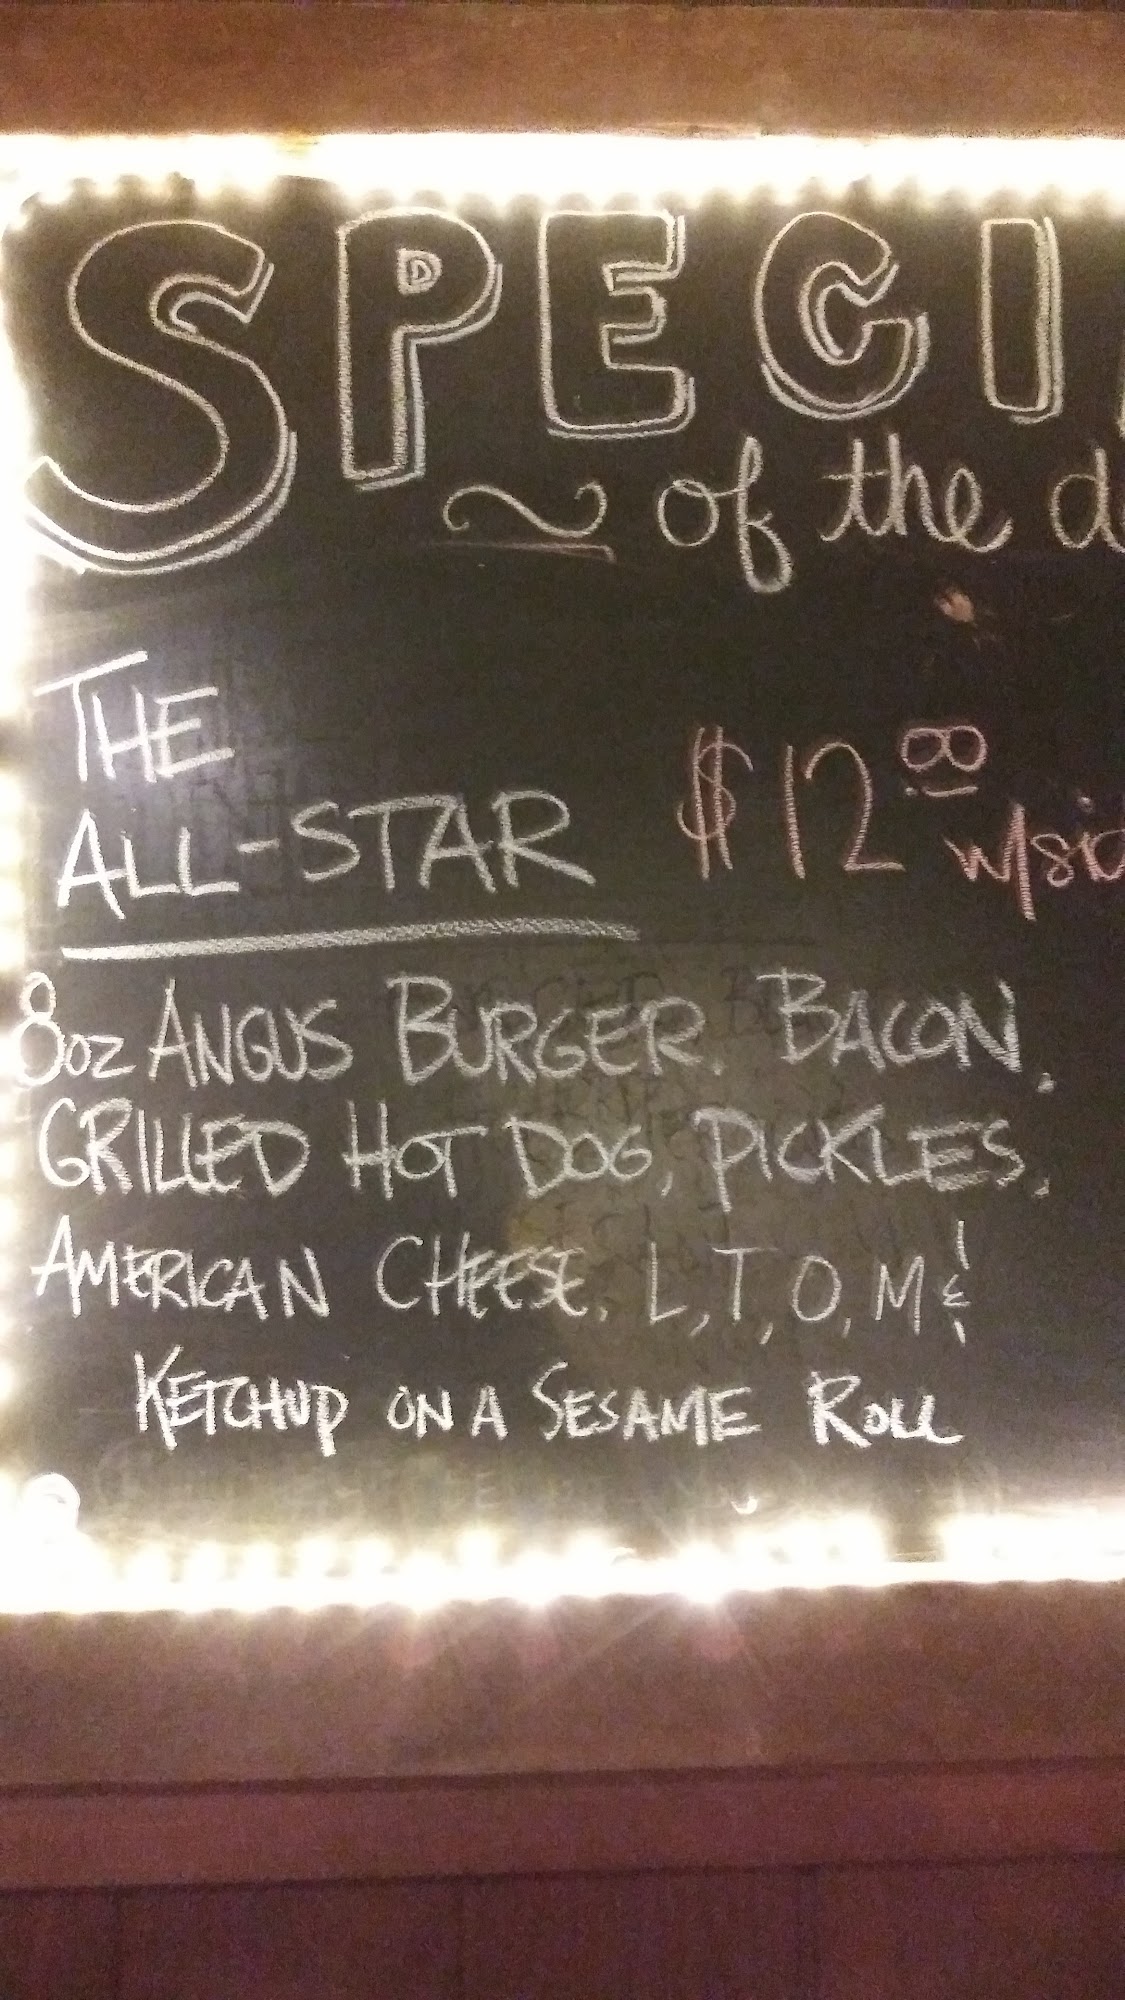 SPECI
of the d
THE
ALL-STAR $12.00 w/sid
8oz ANGUS BURGER, BACON,
GRILLED HOT DOG, PICKLES,
AMERICAN CHEESE, L, T, O, M &
KETCHUP ON A SESAME ROLL